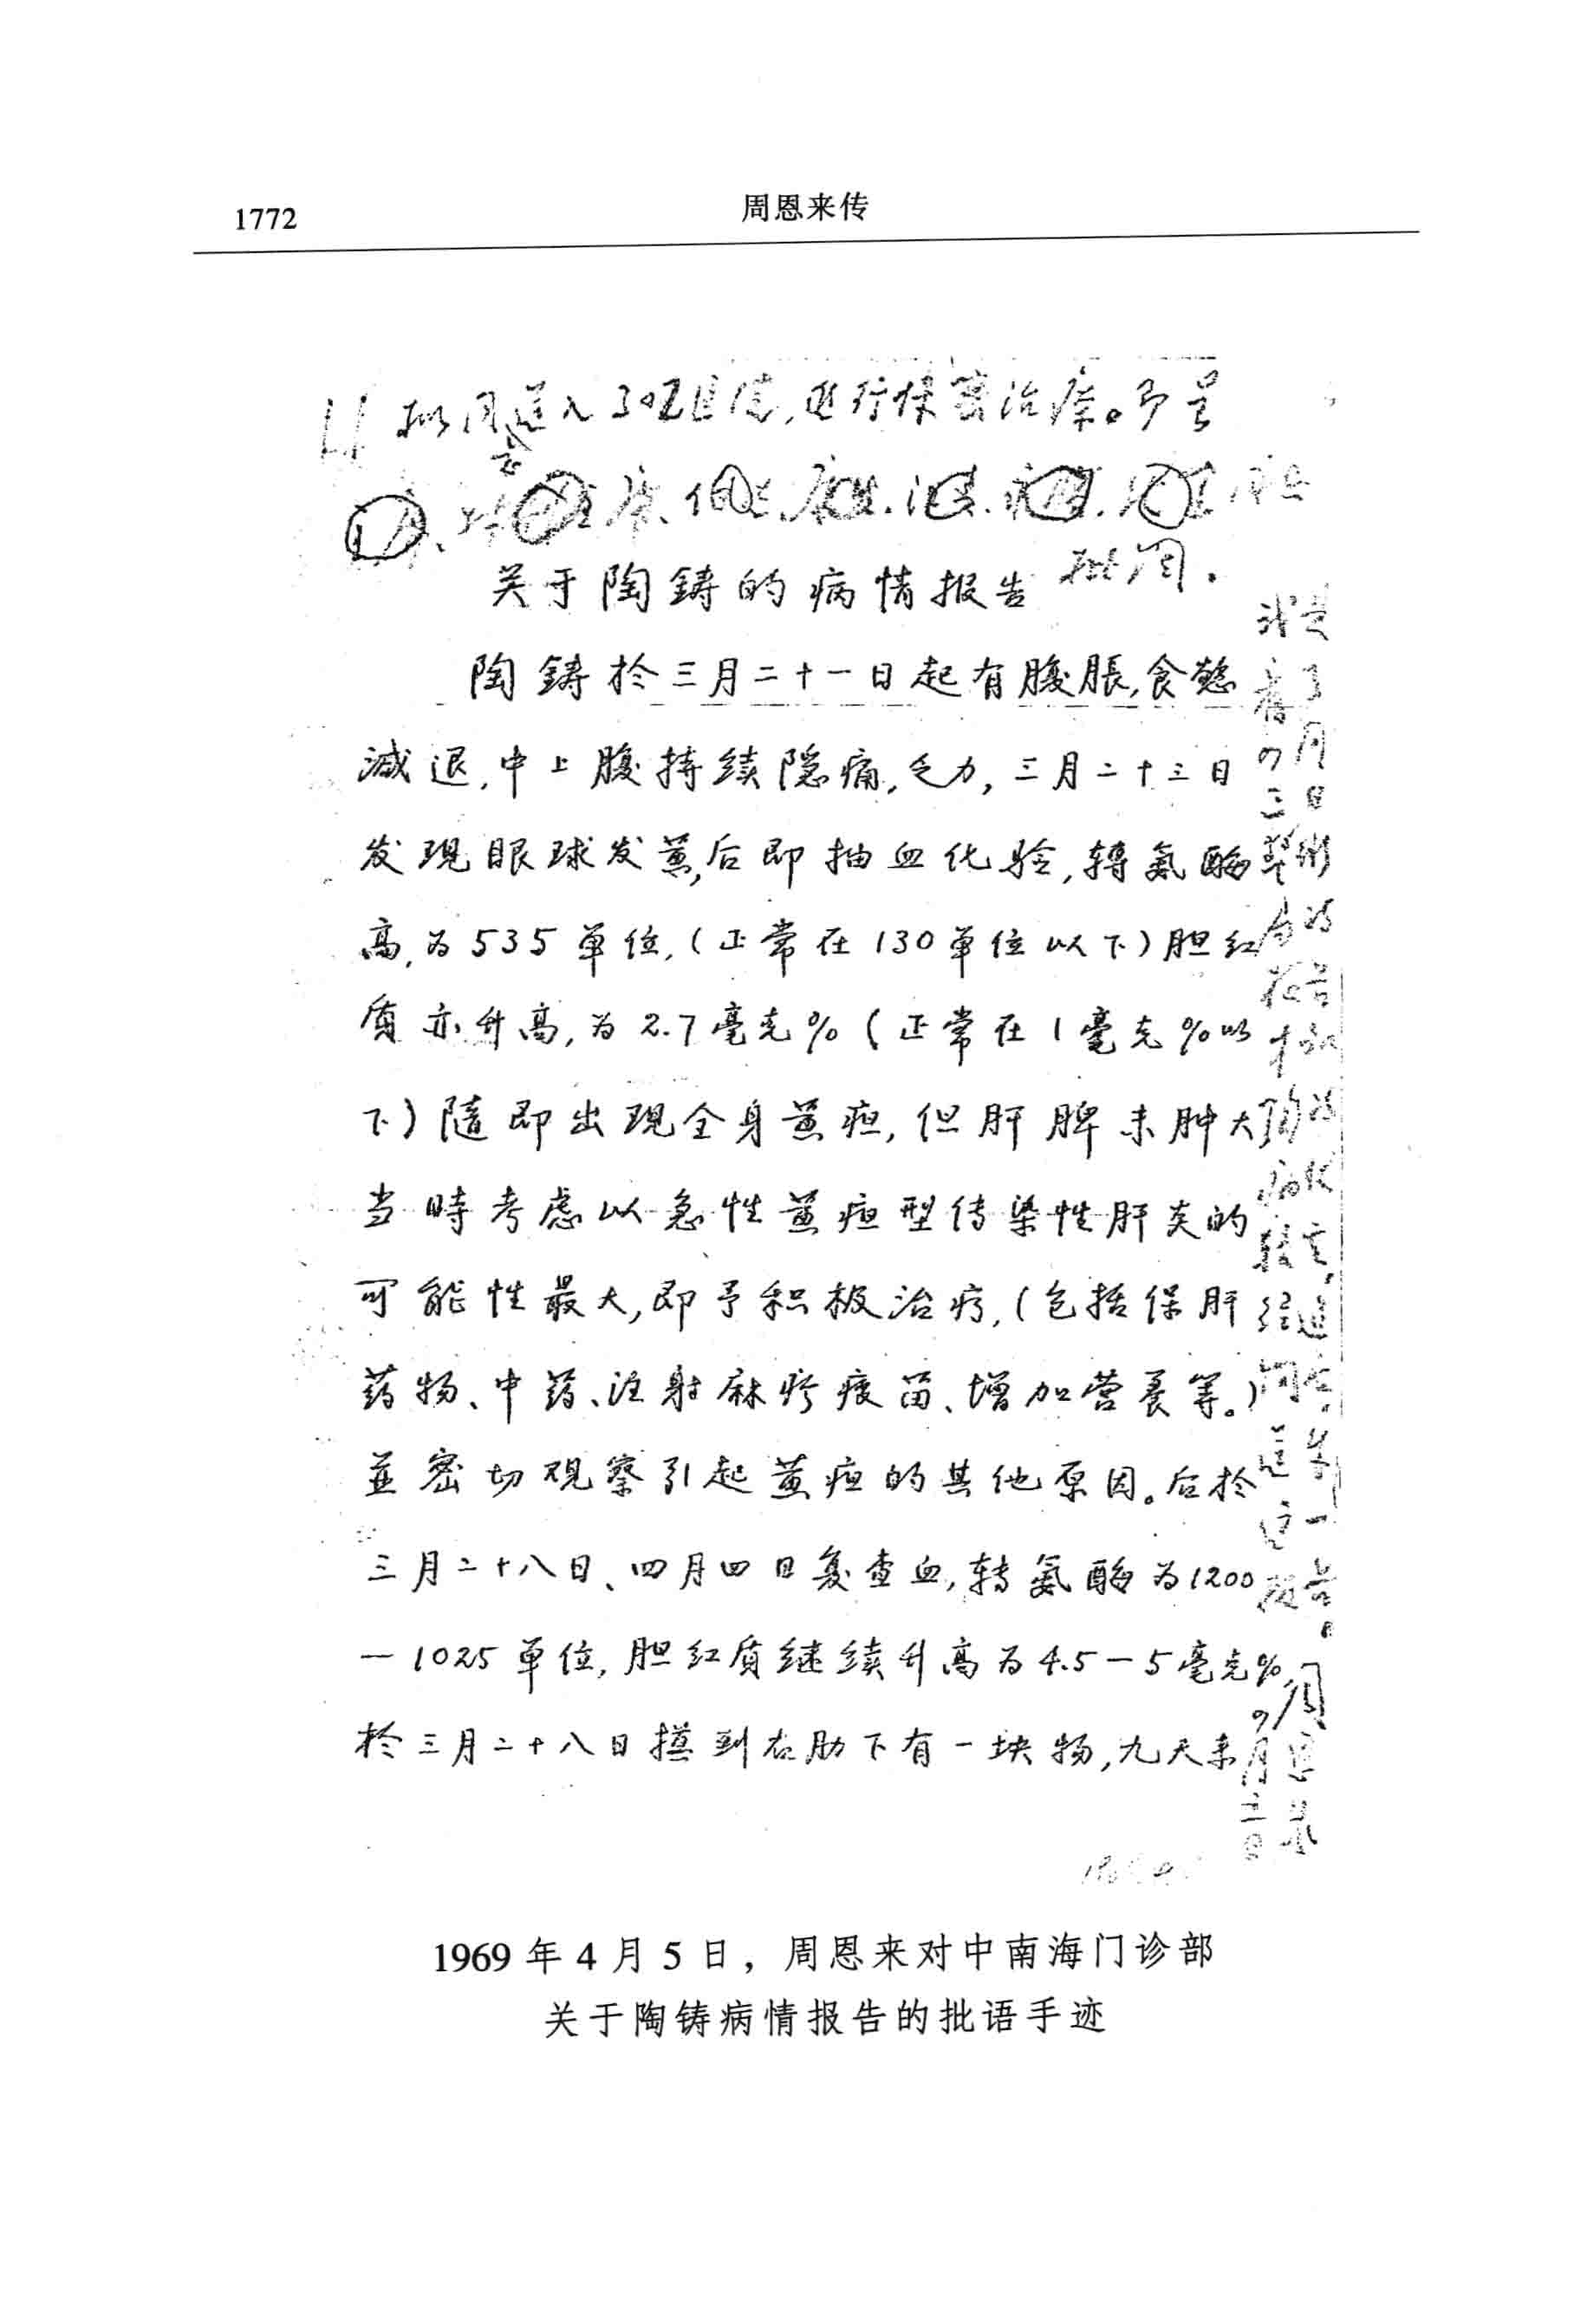 1772
周恩来传
拟同意送入302医院,进行保密治疗。即呈
批阅.
关于陶鋳的病情报告
陶鋳於三月二十一日起有腹脹,食慾
減退,中上腹持续隐痛,乏力,三月二十三日
发现眼球发黃,后即抽血化验,轉氨酶
高,为535单位,(正常在130单位以下)胆红
质亦升高,为2.7毫克%(正常在1毫克%以
下)隨即出现全身黃疸,但肝脾未肿大
当時考虑以急性黃疸型传染性肝炎的
可能性最大,即予积极治疗,(包括保肝
药物、中药、注射麻疹疫苗、增加营养等。)
並密切观察引起黃疸的其他原因。后於
三月二十八日、四月四日复查血,转氨酶为1200
—1025单位,胆红质继续升高为4.5—5毫克%
於三月二十八日摸到右肋下有一块物,九天来
周恩来
1969年4月5日，周恩来对中南海门诊部
关于陶铸病情报告的批语手迹